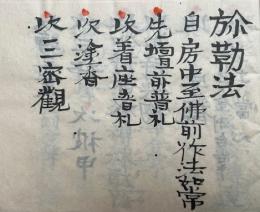 弥勒法
自房中至佛前作法如常
先壇前普礼
次着座普礼
次塗香
次三密觀